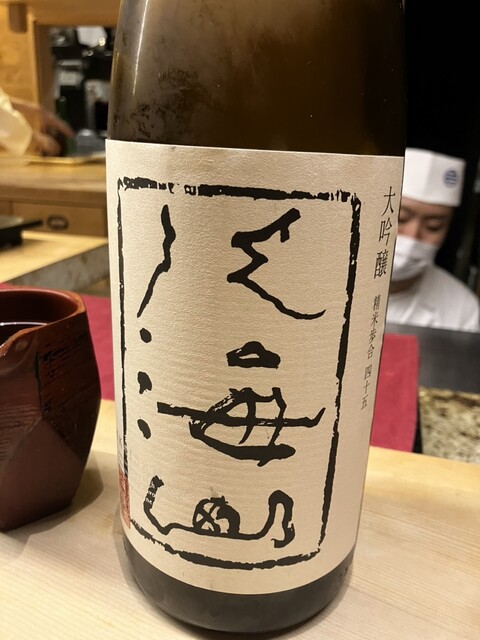 大吟醸 精米歩合 四十五
八海山